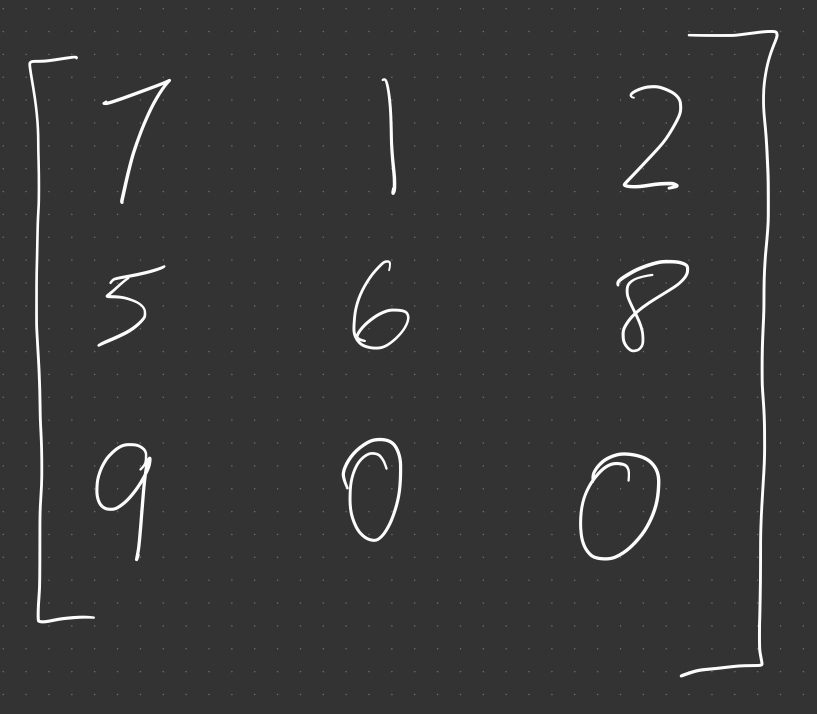 7 1 2
5 6 8
9 0 0